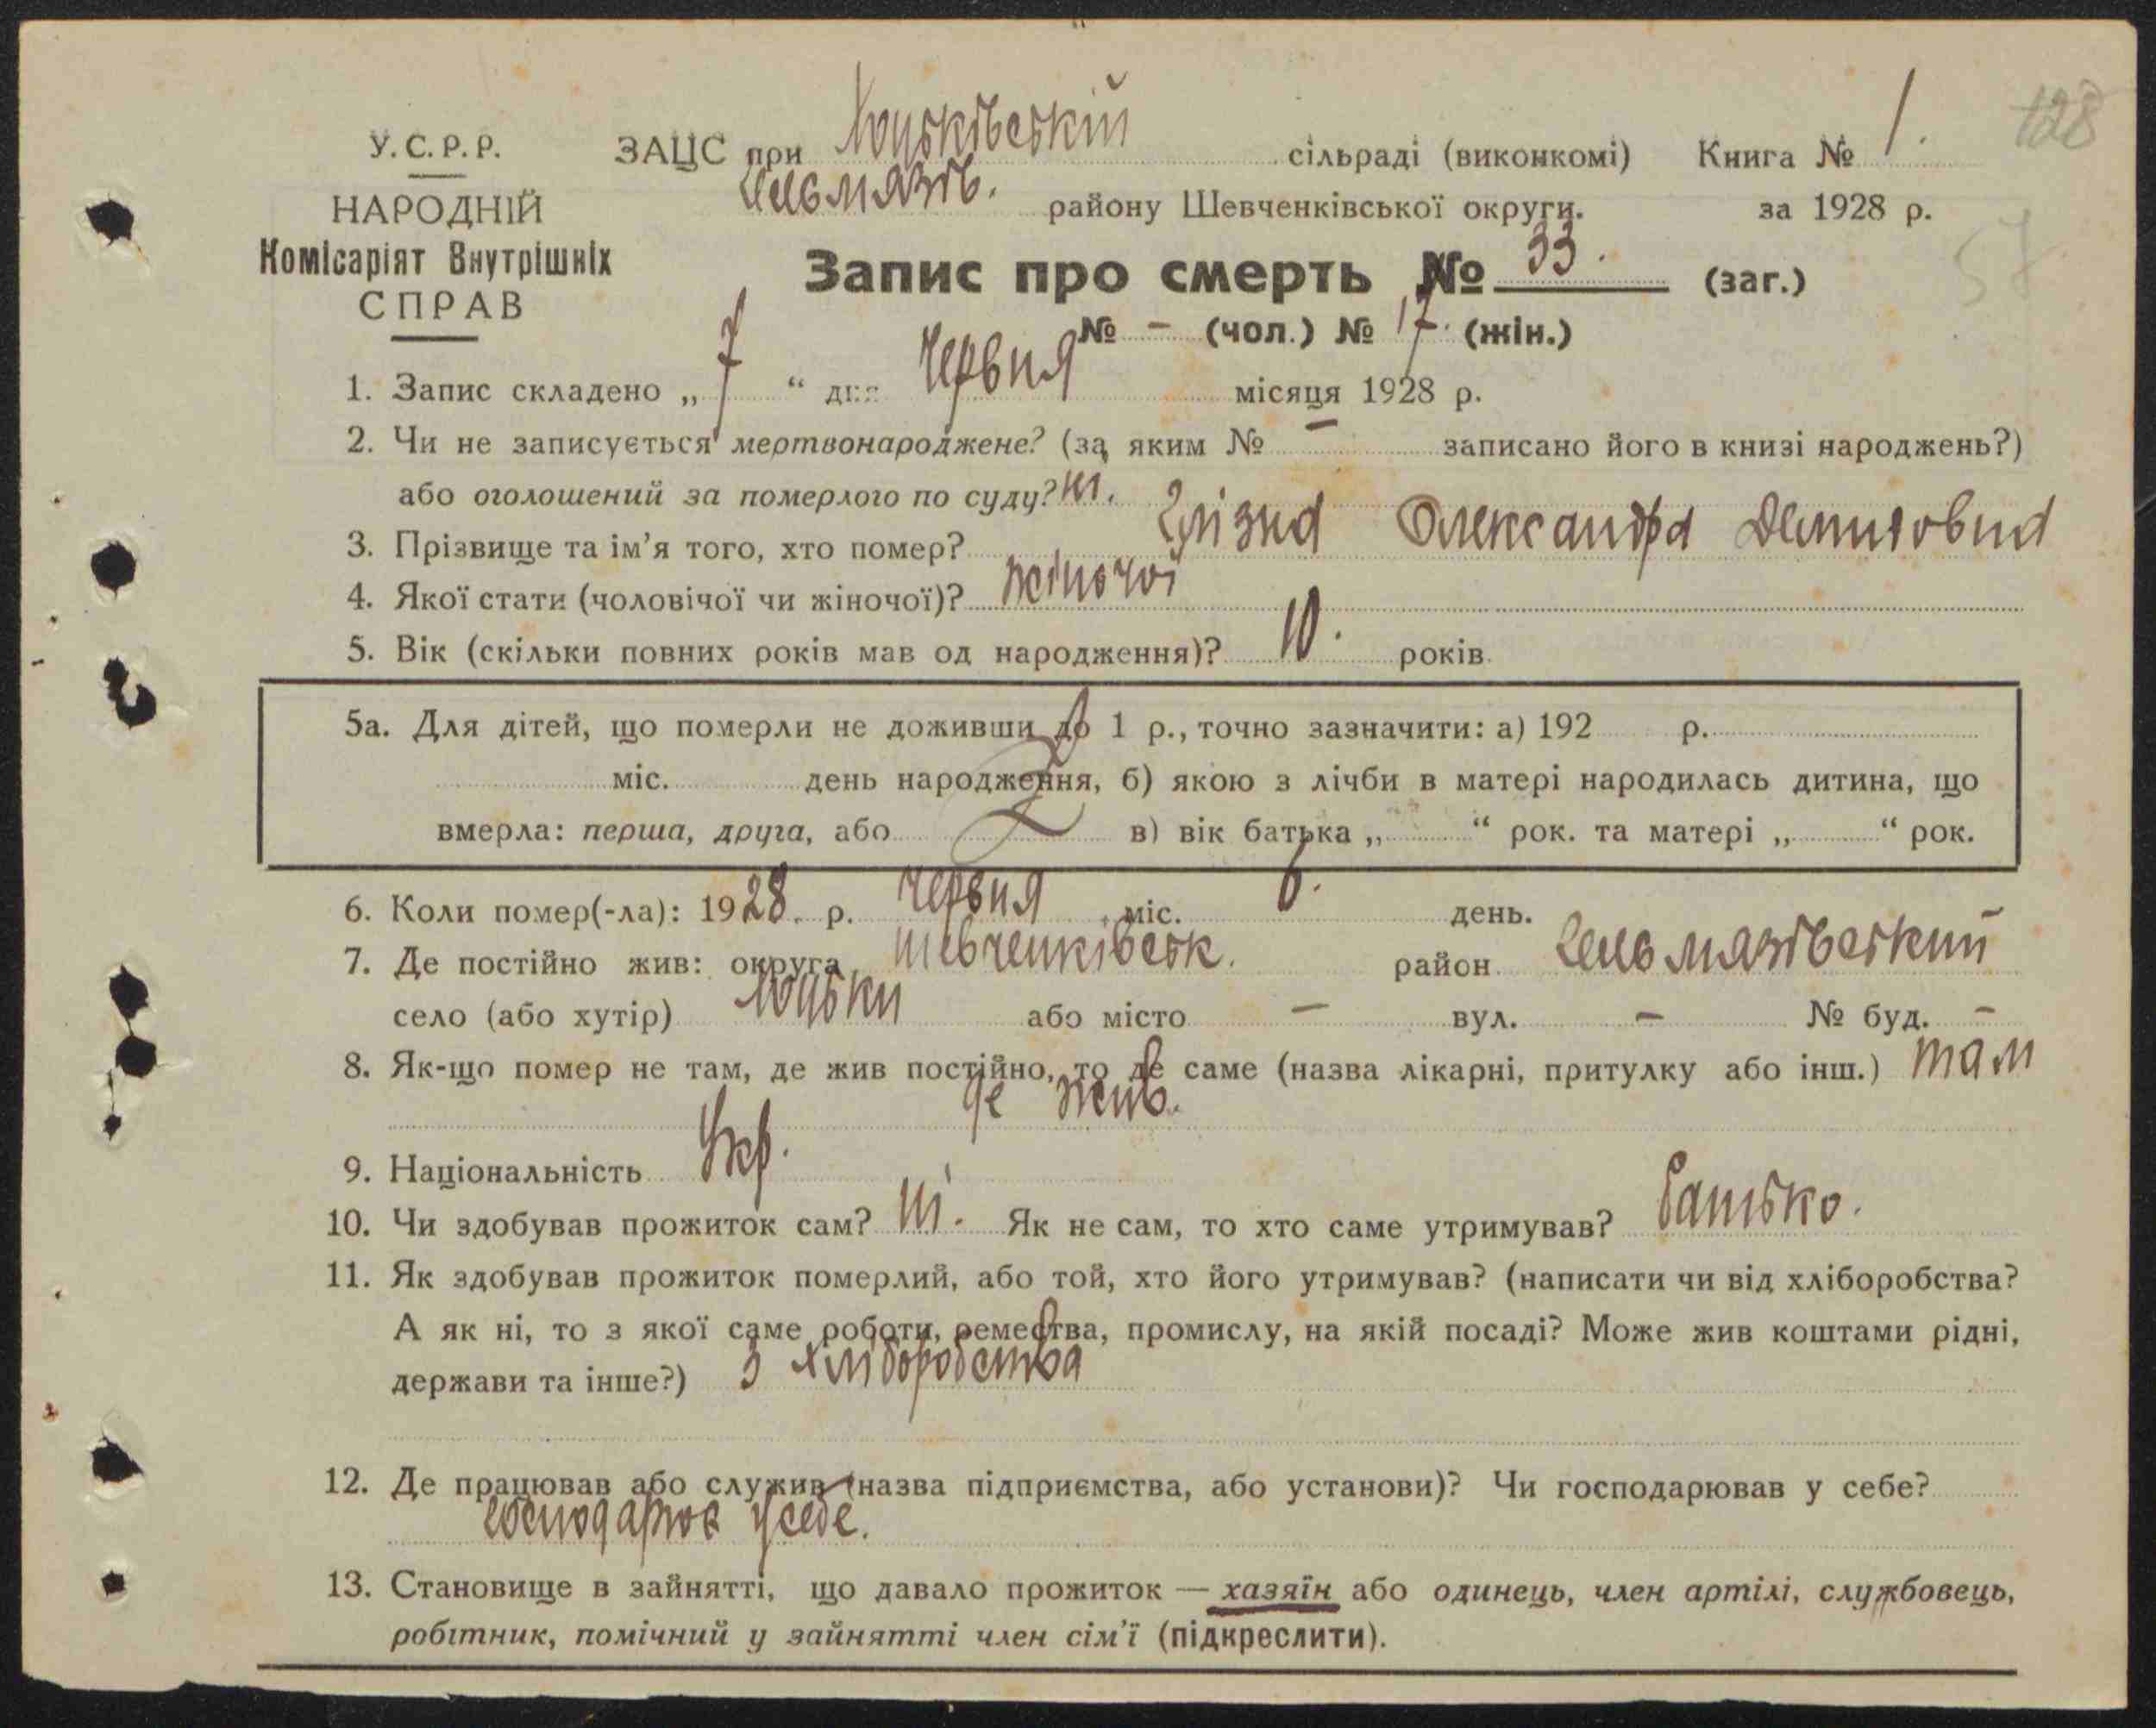 128
У.С.Р.Р. ЗАЦС при Хоцьківській сільраді (виконкомі) Книга № 1.
НАРОДНІЙ Гельмязів. району Шевченківської округи. за 1928 р.
Комісаріят Внутрішніх
СПРАВ
57
Запис про смерть № 33. (заг.)
№ – (чол.) № 17. (жін.)
1. Запис складено „ 7 “ дня Червня місяця 1928 р.
2. Чи не записується мертвонароджене? (за яким № – записано його в книзі народжень?)
або оголошений за померлого по суду? ні.
3. Прізвище та ім’я того, хто помер? Олександра
4. Якої стати (чоловічої чи жіночої)? жіночої
5. Вік (скільки повних років мав од народження)? 10. років
5а. Для дітей, що померли не доживши до 1 р., точно зазначити: а) 192 р.
міс. день народження, б) якою з лічби в матері народилась дитина, що
вмерла: перша, друга, або в) вік батька „ “ рок. та матері „ “ рок.
6. Коли помер(-ла): 1928. р. Червня міс. 6. день.
7. Де постійно жив: округа Шевченківськ. район Гельмязівський
село (або хутір) Хоцьки або місто – вул. – № буд. –
8. Як-що помер не там, де жив постійно, то де саме (назва лікарні, притулку або інш.) там
де жив.
9. Національність Укр.
10. Чи здобував прожиток сам? ні. Як не сам, то хто саме утримував? батько.
11. Як здобував прожиток померлий, або той, хто його утримував? (написати чи від хліборобства?
А як ні, то з якої саме роботи, ремества, промислу, на якій посаді? Може жив коштами рідні,
держави та інше?) З хліборобства
12. Де працював або служив (назва підприємства, або установи)? Чи господарював у себе?
господарюв у себе.
13. Становище в зайнятті, що давало прожиток — хазяїн або одинець, член артілі, службовець,
робітник, помічний у зайнятті член сім’ї (підкреслити).